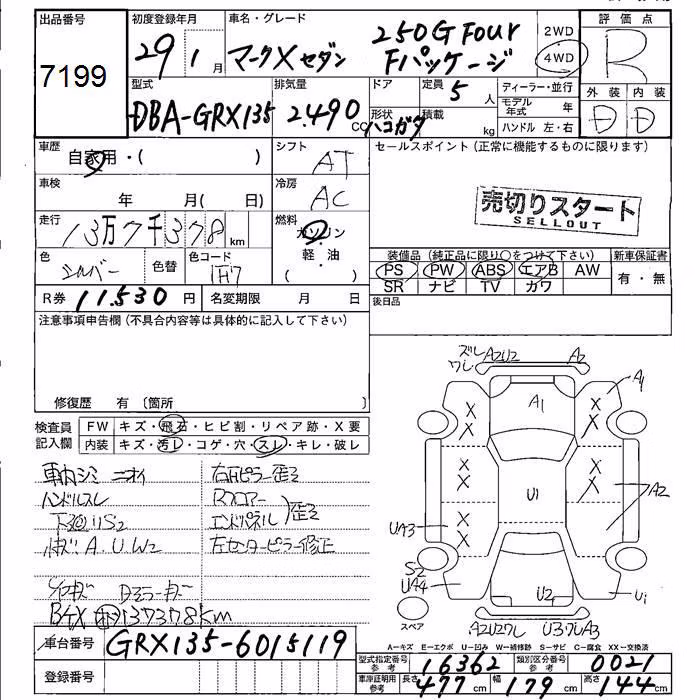 出品番号
7199
初度登録年月
29 1月
車名・グレード
マークXセダン 250G Four
Fパッケージ
2WD
4WD
評価点
R
外装 内装
D D
型式
DBA-GRX135
排気量
2.490 CC
ドア
形状
ハコガタ
定員
5人
積載
kg
ディーラー・並行
モデル年式 年
ハンドル 左・右
車歴
自家用・( )
シフト
AT
セールスポイント (正常に機能するものに限ります)
売切りスタート
SELLOUT
車検
年 月( 日)
冷房
AC
走行
13万7千378 km
燃料
ガソリン
軽・油
( )
色
シルバー
色替
色コード
1F7
装備品 (純正品に限り○をつけて下さい)
PS PW ABS エアB AW
SR ナビ TV カワ
新車保証書
有・無
R券 11,530 円
名変期限 月 日
後日品
注意事項申告欄 (不具合内容等は具体的に記入して下さい)
修復歴 有 〔箇所
検査員
記入欄
FW キズ・飛石・ヒビ割・リペア跡・X要
内装 キズ・汚レ・コゲ・穴・スレ・キレ・破レ
車内シミ ニオイ
ハンドルスレ
下回りS2
A.U.W2
右Hピラー歪ミ
Rフロアー
エンドパネル 歪ミ
左センターピラー修正
137378km
ズレ
ワレ
A2U2 A2
A1 A1
X X X X
X X X X
U1
A2
UA3
X X
S2
UA4
U2
U1
スペア
A2U2ワレ U3ワレA3
A=キズ E=エクボ U=凹み W=補修跡 S=サビ C=腐食 XX=交換済
車台番号
GRX135-6015119
登録番号
型式指定番号
参考
16362
類別区分番号
参考
0021
車庫証明用
参考
長さ 477 cm
幅 179 cm
高さ 144 cm